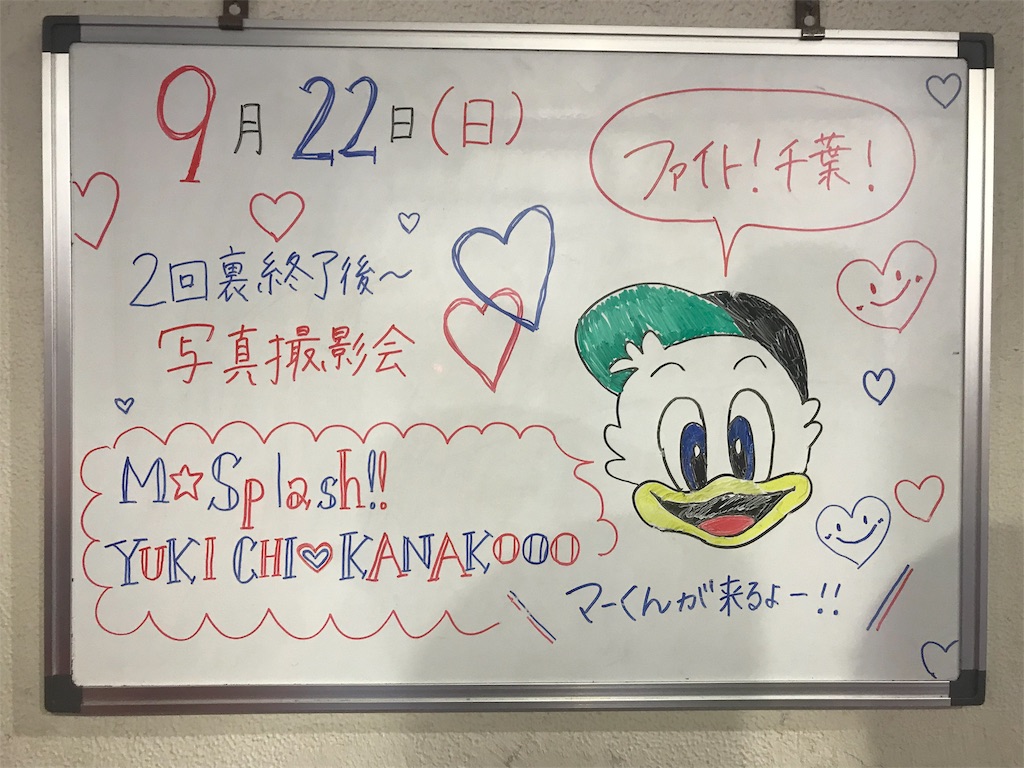 9月22日(日)
ファイト!千葉!
2回裏終了後〜
写真撮影会
M☆Splash!!
YUKI CHI♡KANAKO
マーくんが来るよー!!